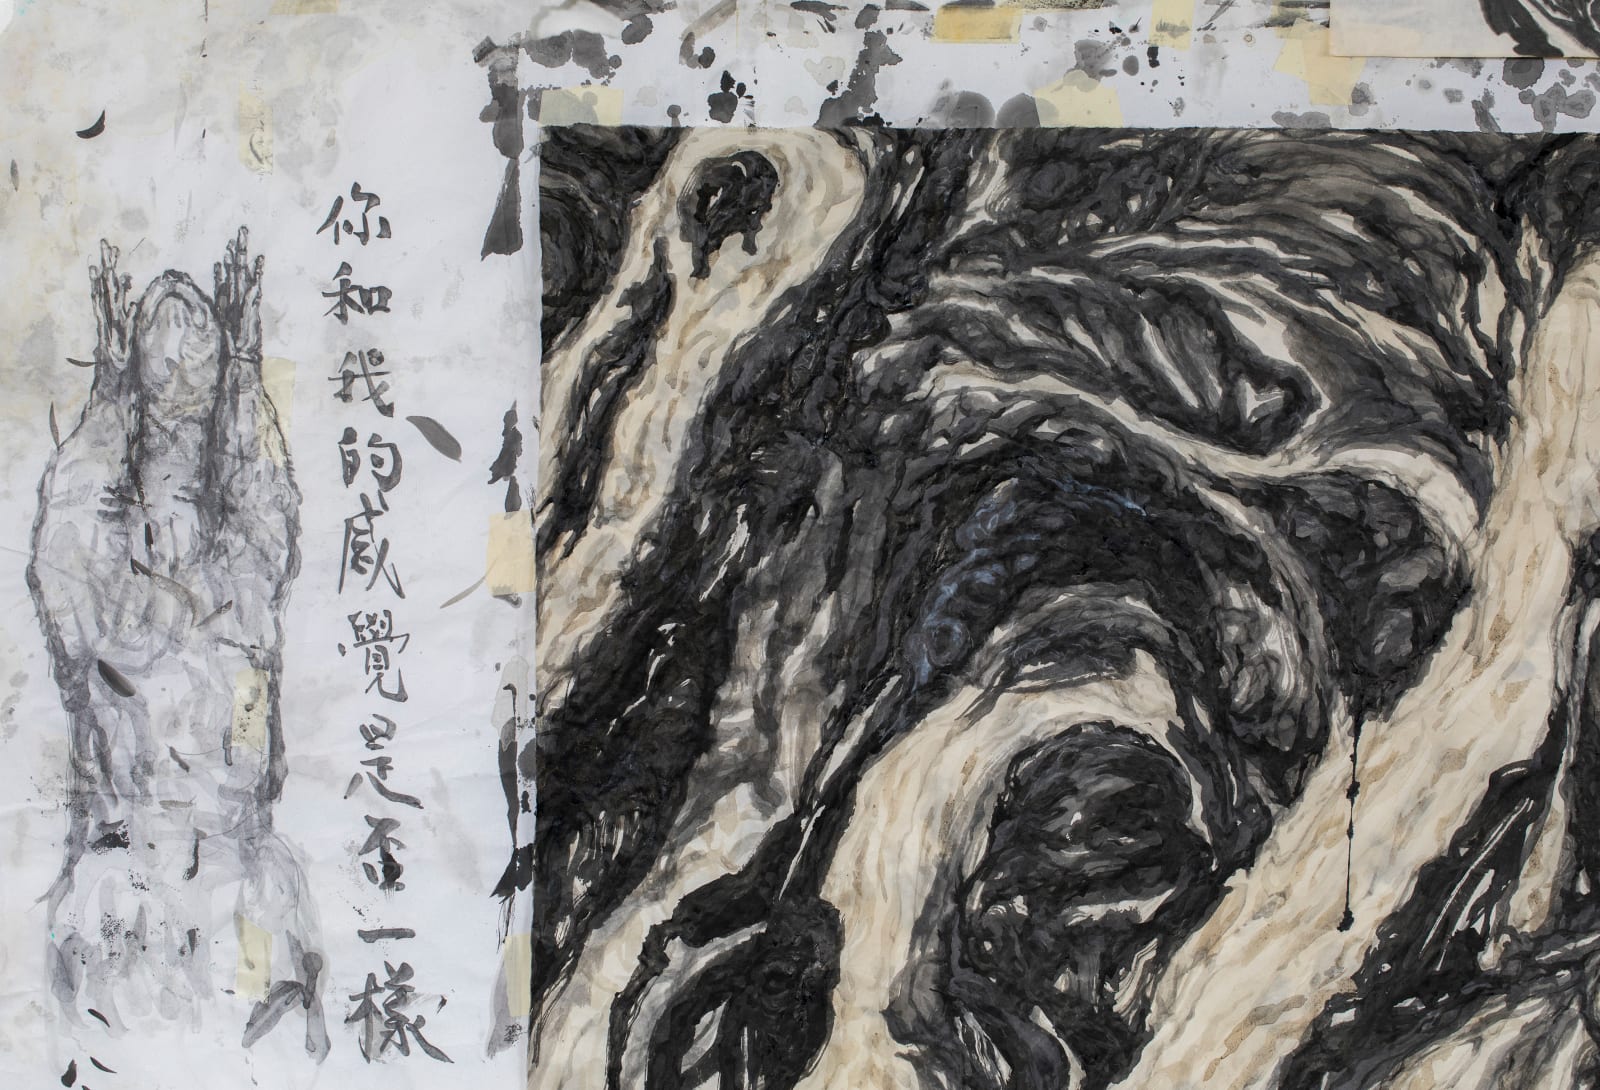 你和我的感覺是否一樣